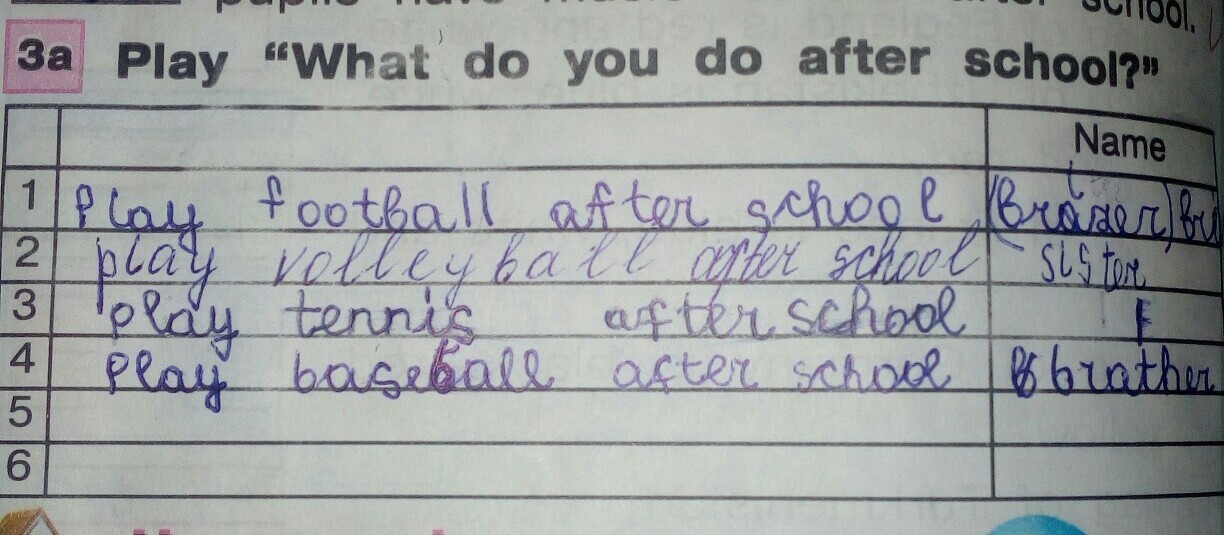 school.
3a Play “What do you do after school?”
Name
1 Play football after school (Brader)
2 play volleyball after school sister
3 play tennis after school
4 Play baseball after school brather
5
6